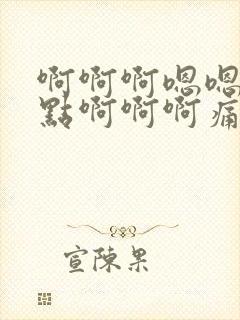 啊啊啊嗯嗯
點啊啊啊痛
宣陳果